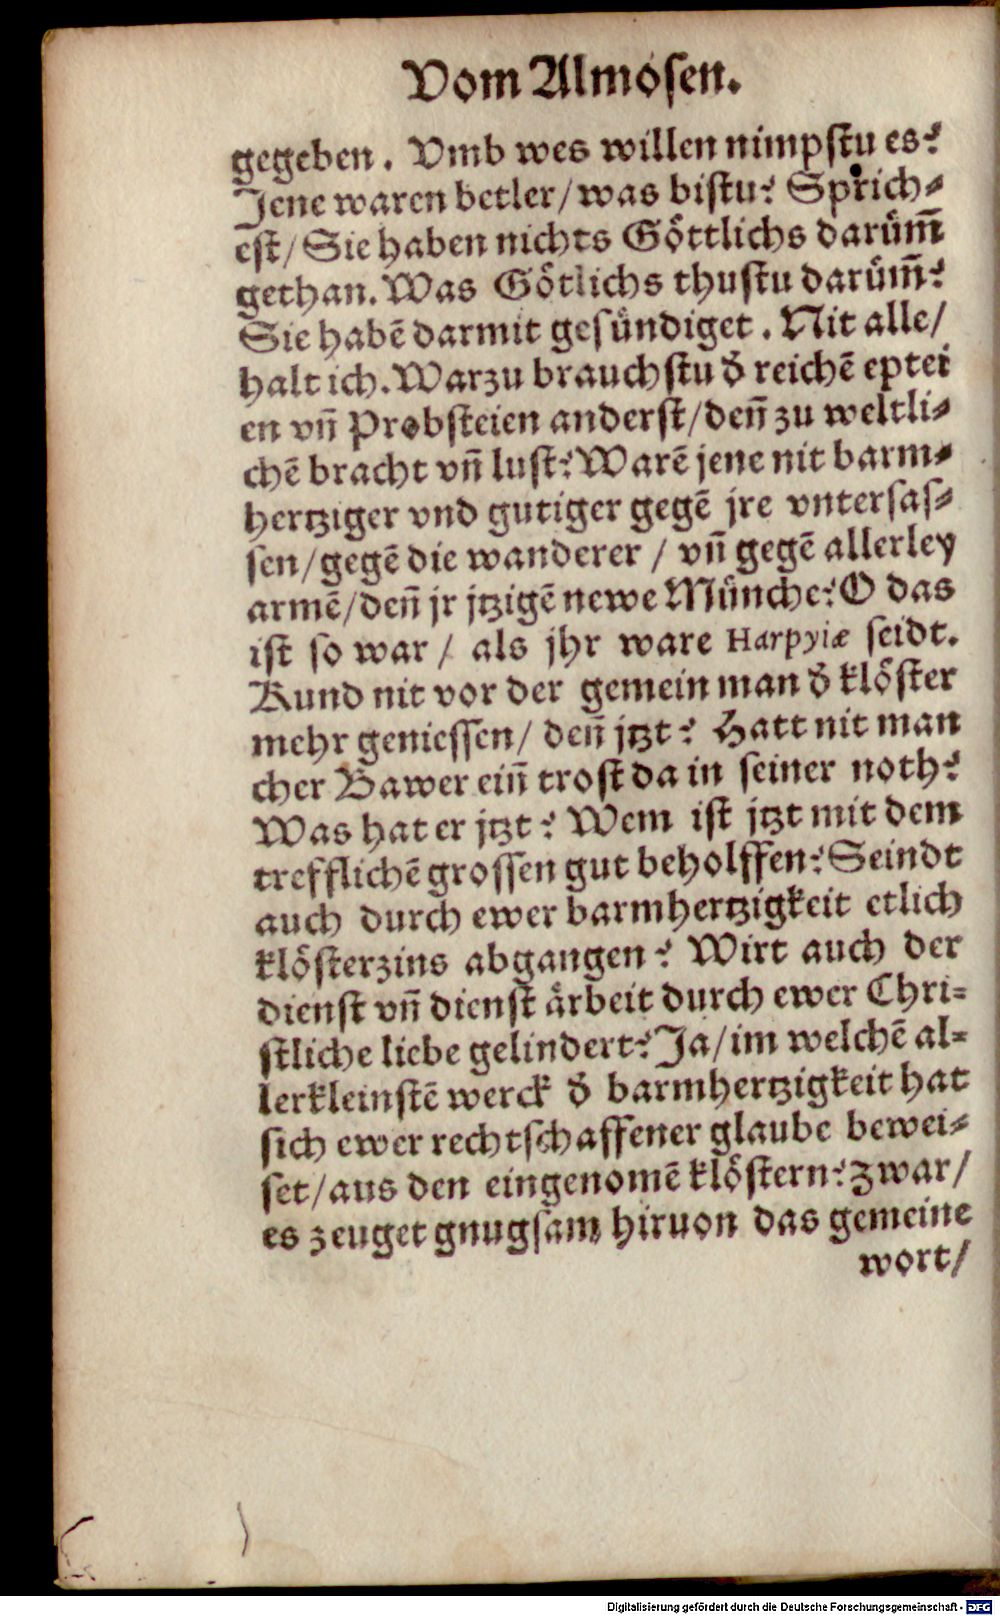 Vom Almosen.
gegeben. Vmb wes willen nimpstu es?
Jene waren betler/was bistu? Sprich⸗
est/Sie haben nichts Göttlichs darüm̄
gethan. Was Götlichs thustu darüm̄?
Sie habē darmit gesündiget. Nit alle/
halt ich. Warzu brauchstu d̄ reichē eptei
en vn̄ Probsteien anderst/den̄ zu weltli⸗
chē bracht vn̄ lust? Warē jene nit barm⸗
hertziger vnd gutiger gegē jre vntersas⸗
sen/gegē die wanderer / vn̄ gegē allerley
armē/den̄ jr jtzigē newe Münche? O das
ist so war / als jhr ware Harpyiæ seidt.
Kund nit vor der gemein man d̄ klöster
mehr geniessen/ den̄ jtzt? Hatt nit man
cher Bawer ein̄ trost da in seiner noth?
Was hat er jtzt? Wem ist jtzt mit dem
trefflichē grossen gut beholffen? Seindt
auch durch ewer barmhertzigkeit etlich
klösterzins abgangen? Wirt auch der
dienst vn̄ dienst ärbeit durch ewer Chri⸗
stliche liebe gelindert? Ja/im welchē al⸗
lerkleinstē werck d̄ barmhertzigkeit hat
sich ewer rechtschaffener glaube bewei⸗
set/aus den eingenomē klöstern? zwar/
es zeuget gnugsam hiruon das gemeine
wort/
Digitalisierung gefördert durch die Deutsche Forschungsgemeinschaft - DFG